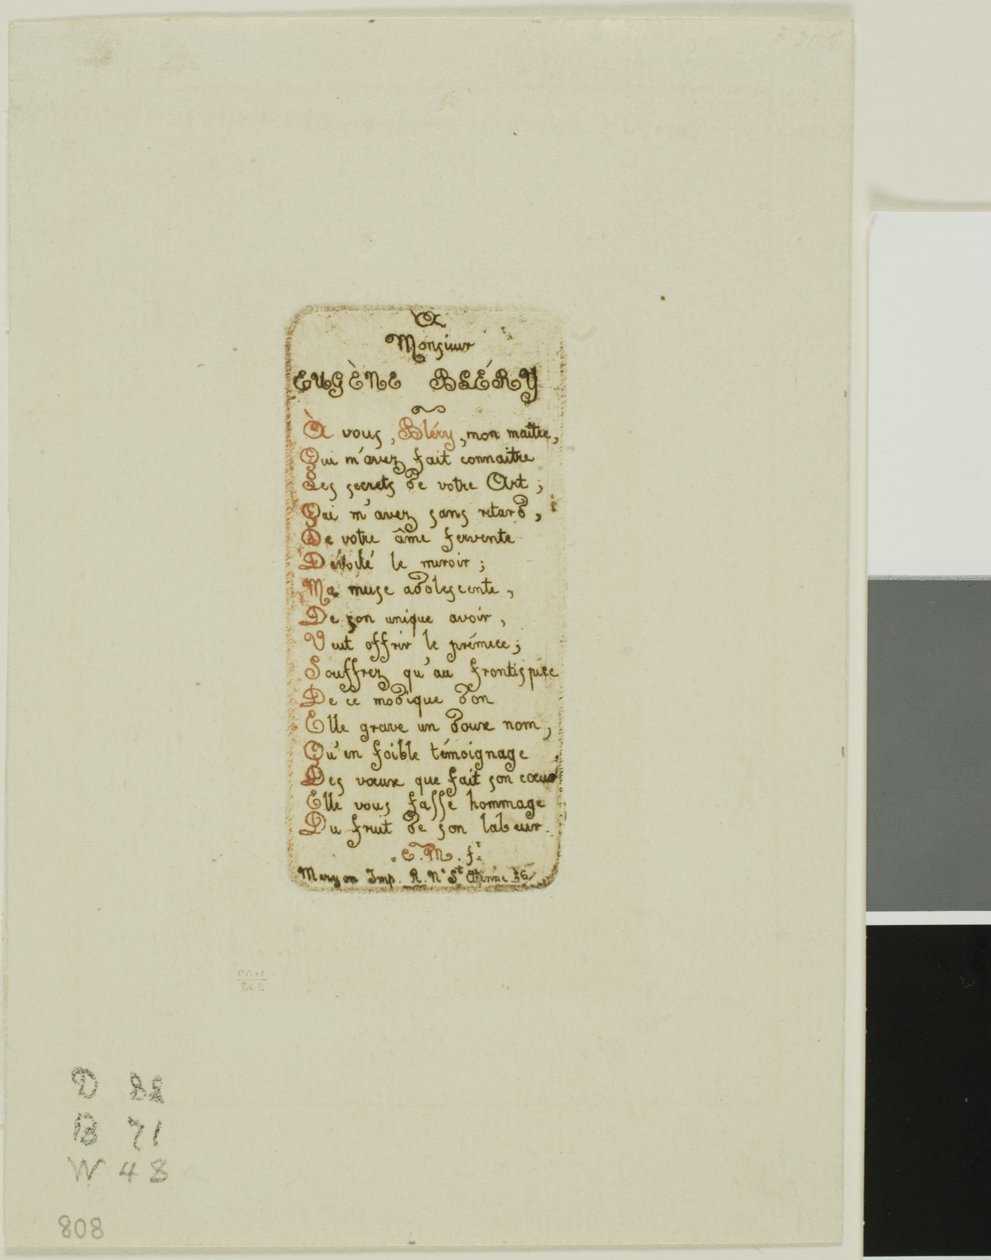 A
Monsieur
EUGÈNE BLÉRY
À vous, Bléry, mon maître,
Qui m'avez fait connaître
Les secrets de votre Art;
Qui m'avez sans retard,
De votre âme fervente
Dévoilé le miroir;
Ma muse adolescente,
De son unique avoir,
Veut offrir le prémice;
Souffrez qu'au frontispice
De ce modique don
Elle grave un doux nom,
Qu'en foible témoignage
Des vœux que fait son cœur
Elle vous fasse hommage
Du fruit de son labeur.
C.M. ft.
Meryon Imp. R. Nve St Etienne 26
D 88
B 71
W 48
808